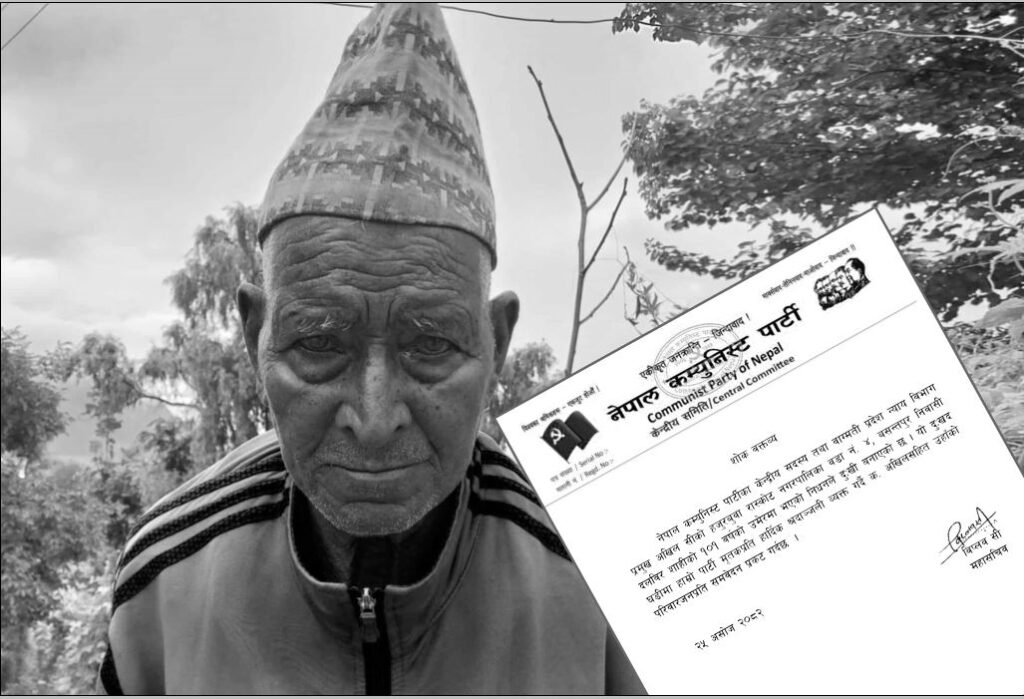 विश्वका श्रमिकहरू – एकजुट होऔं !
एकीकृत जनक्रान्ति – जिन्दावाद !
मार्क्सवाद-लेनिनवाद-माओवाद – जिन्दावाद !!
नेपाल कम्युनिस्ट पार्टी
Communist Party of Nepal
केन्द्रीय समिति/Central Committee
पत्र संख्या / Serial No :-
चलानी नं. / Regd. No :-
शोक वक्तव्य
नेपाल कम्युनिस्ट पार्टीका केन्द्रीय सदस्य तथा वाग्मती प्रदेश न्याय विभाग
प्रमुख अखिल सीको हजुरबुवा रास्कोट नगरपालिका वडा नं. ४, वसन्तपुर निवासी
दलविर शाहीको १०१ वर्षको उमेरमा भएको निधनले दुःखी बनाएको छ । यो दुखद
घडीमा हाम्रो पार्टी मृतकप्रति हार्दिक श्रदाञ्जली व्यक्त गर्दै क. अखिलसहित उहाँको
परिवारजनप्रति समवेदना प्रकट गर्दछ ।
विप्लव सी
महासचिव
२५ असोज २०८२